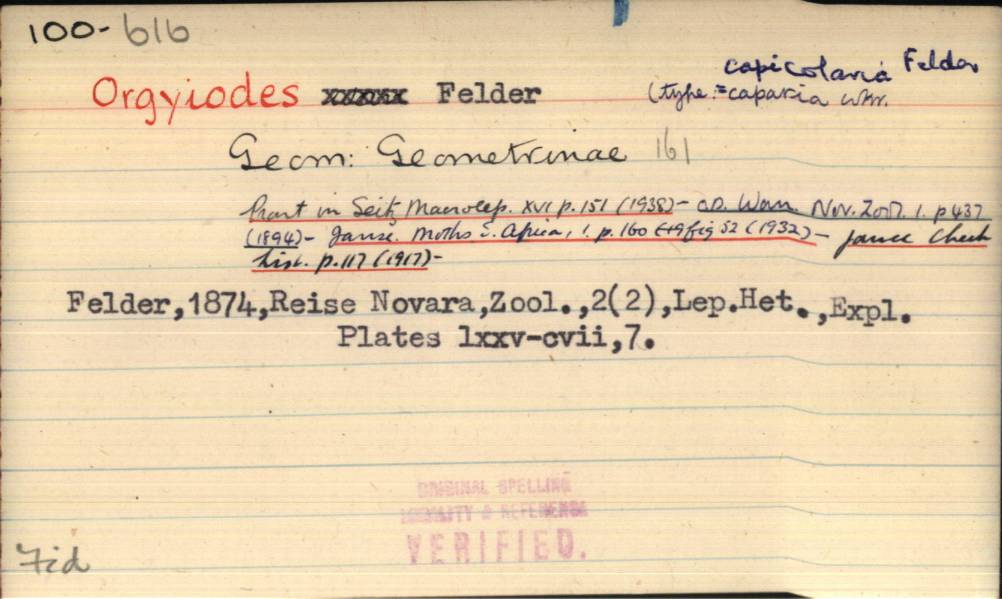 100-616
capicolaria Felder
Orgyiodes Felder (type:=caparia Wkr.
Geom: Geometrinae 161
Prout in Seitz Macrolep. XVI p. 151 (1938)- Warr. Nov. Zool. 1. p 437
(1894)- Janse. Moths S. Africa, 1. p. 160 fig 52 (1932)- Janse Check
List. p. 117 (1917)-
Felder,1874,Reise Novara,Zool.,2(2),Lep.Het.,Expl.
Plates lxxv-cvii,7.
ORIGINAL SPELLING
& REFERENCE
VERIFIED.